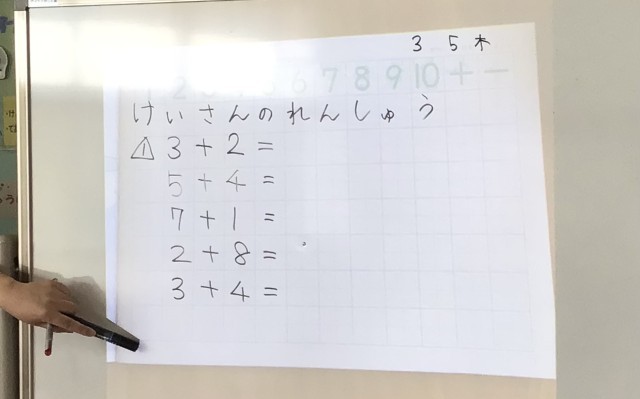 3 5 木
1 2 3 4 5 6 7 8 9 10 + −
けいさんのれんしゅう
⚠ 3 + 2 =
5 + 4 =
7 + 1 =
2 + 8 =
3 + 4 =